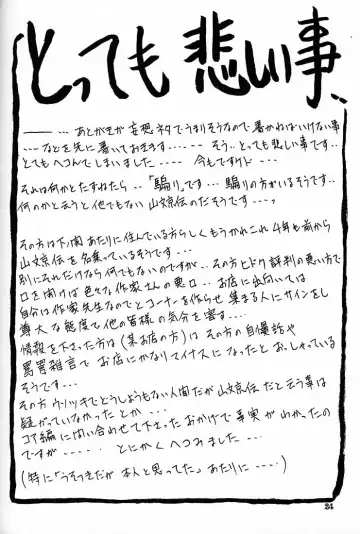 とっても悲しい事‥
――― ‥‥あとがきが妄想ネタでうまりそうなので書かねばいけない事
‥‥などを先に書いておきます‥‥‥ そう‥とっても悲しい事です‥
とてもヘコんでしまいました‥‥ 今もですけド‥‥
それは何かとたずねたら‥「騙り」です‥‥騙りの方がいるそうです‥
何のかと云うと他でもない山文京伝のだそうです‥‥っ
その方は下関あたりに住んでいる方らしくもうかれこれ4年も前から
山文京伝を名乗っているそうです‥‥
別にそれだけなら何でもないのですが‥‥その方ヒドク評判の悪い方で
口を開けば色々な作家さんの悪口‥‥お店に出向いては
自分は作家先生なのでとコーナーを作らせ集まる人にサインをし
尊大な態度で他の皆様の気分を害す‥‥
情報を下さった方は(某お店の方)はその方の自慢話や
罵詈雑言でお店にかなりマイナスになったとおっしゃっている
そうです‥‥
その方ウソツキでどうしようもない人間だが山文京伝だと云う事は
疑がっていなかったとか‥‥
コア編に問い合わせて下さったおかげで事実がわかったの
ですが‥‥‥ とにかくヘコみました‥‥
(特に「うそつきだが本人と思ってた」あたりに‥‥)
24